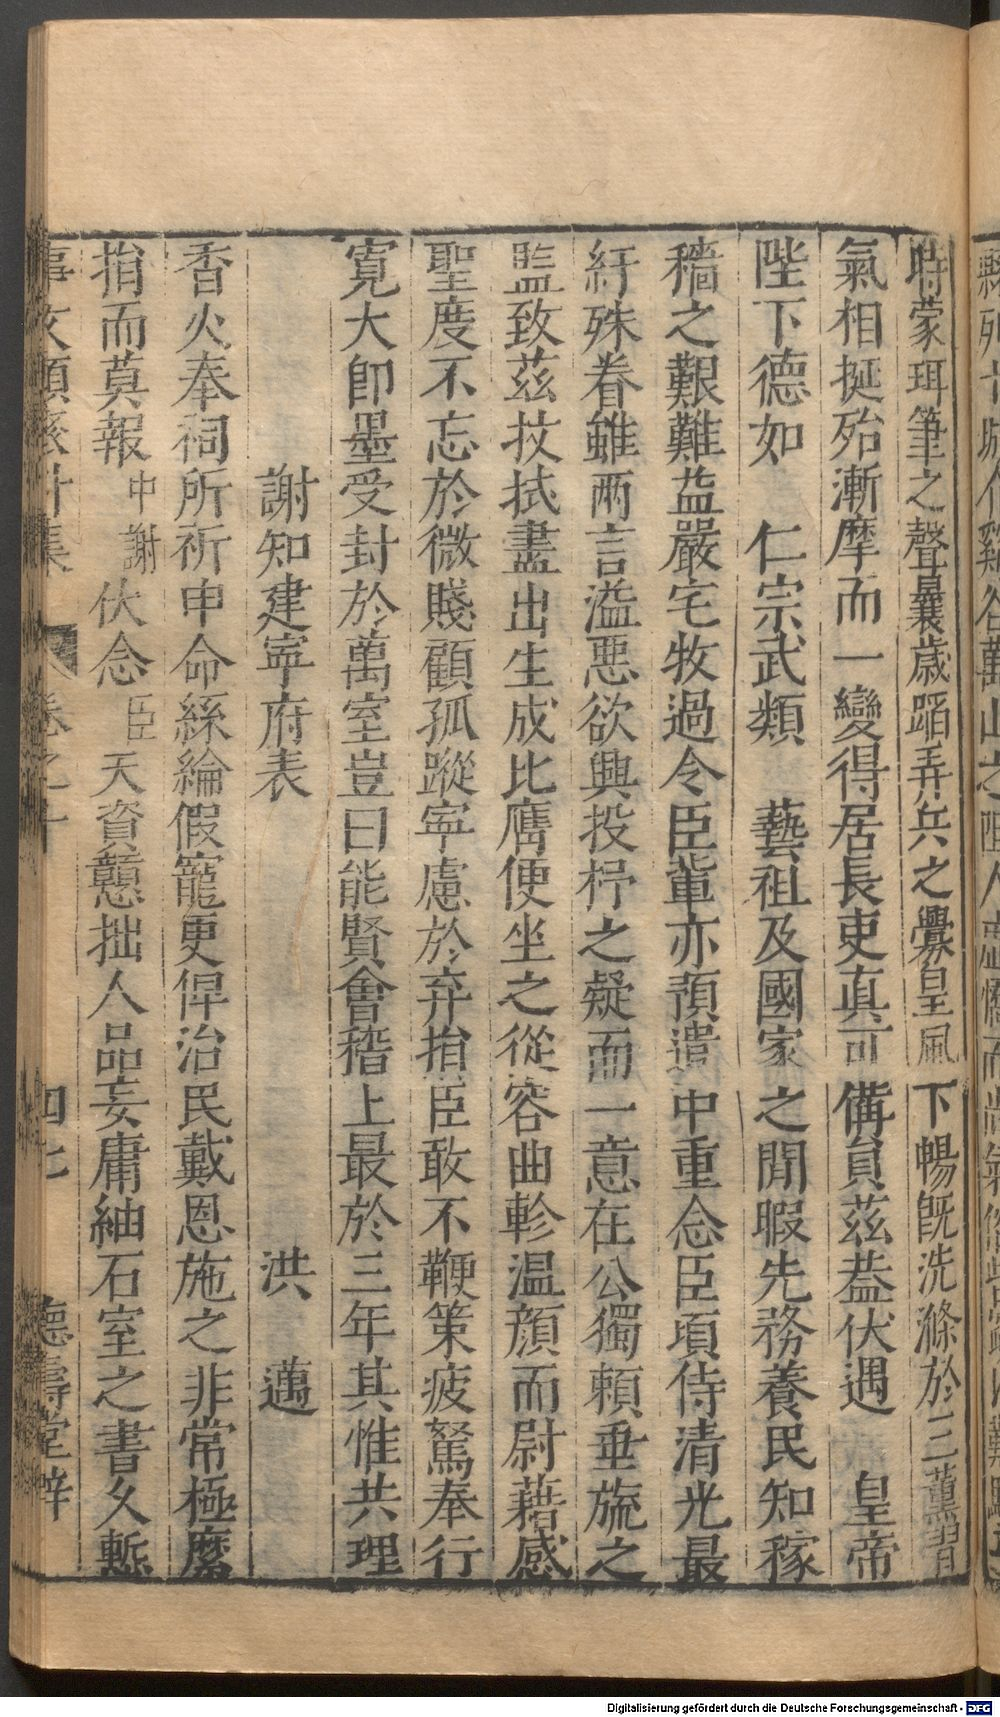 時蒙珥筆之聲曩歲蹈弄兵之釁皇風下暢旣洗滌於三薰習
氣相挻殆漸摩而一變得居長吏真可備員茲葢伏遇　皇帝
陛下德如　仁宗武類　藝祖及國家之閒暇先務養民知稼
穡之艱難葢嚴宅牧過令臣輩亦預遣中重念臣頃侍清光最
紆殊眷雖兩言溢惡欲興投杼之疑而一意在公獨賴垂旒之
監致茲抆拭盡出生成比膺便坐之從容曲軫温顔而尉藉感
聖度不忘於微賤顧孤蹤寧慮於弃捐臣敢不鞭策疲駑奉行
寬大卽墨受封於萬室豈曰能賢會稽上最於三年其惟共理
謝知建寧府表　洪　邁
香火奉祠所祈申命絲綸假寵更俾治民戴恩施之非常極糜
捐而莫報中謝伏念臣天資戇拙人品妄庸紬石室之書久慙
事文類聚外集　卷之十　四七　德壽堂梓
Digitalisierung gefördert durch die Deutsche Forschungsgemeinschaft - DFG